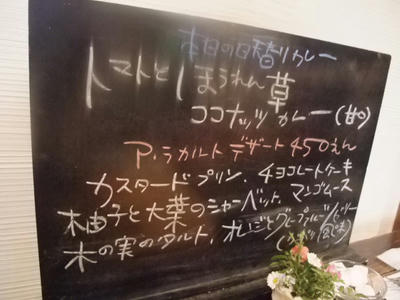 本日の日替りカレー
トマトとほうれん草
ココナッツカレー(甘口)
ア・ラカルトデザート450えん
カスタードプリン、チョコレートケーキ
柚子と大葉のシャーベット、マンゴムース
木の実のタルト、オレンジとグレープフルーツゼリー
風味)